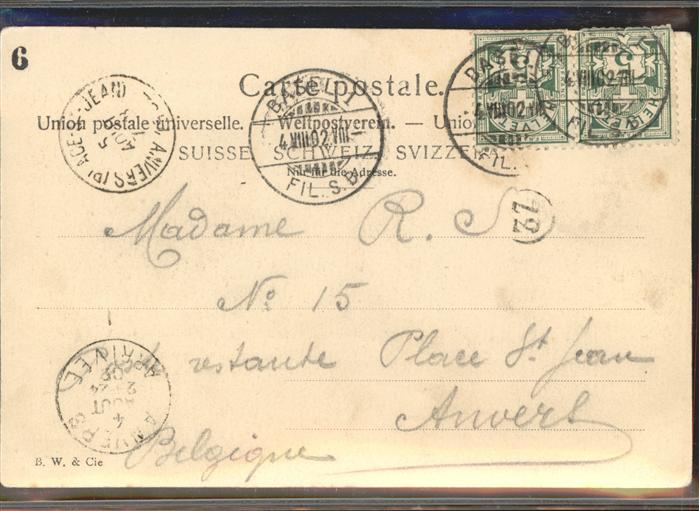 6
Carte postale.
Union postale universelle. — Weltpostverein. — Union
SUISSE. SCHWEIZ. SVIZZERA.
Nur für die Adresse.
BASEL 1
4.VIII.02.VIII-
FIL. S.B.
BASEL
4.VIII.02.VIII
FIL.
4.VIII.02.VIII
FIL. S.B.
HELVETIA
5
HELVETIA
ANVERS (PLACE-ST-JEAN)
5
AOUT
22
Madame R. S
No 15
restante Place St Jean
Anvers
Belgique
ANVERS
ARRIVÉE
4
AOUT
B. W. & Cie